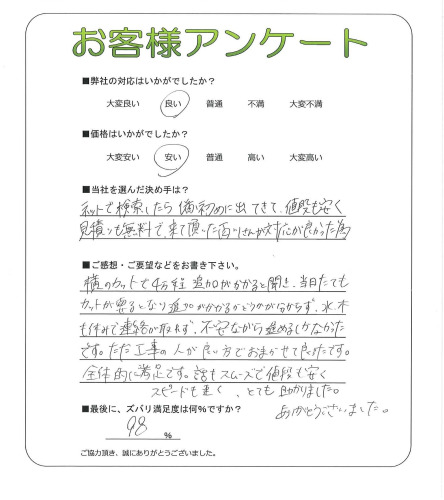 お客様アンケート
■弊社の対応はいかがでしたか?
大変良い 良い 普通 不満 大変不満
■価格はいかがでしたか?
大変安い 安い 普通 高い 大変高い
■当社を選んだ決め手は?
ネットで検索したら 初めに出てきて、値段も安く
見積りも無料で、来て頂いた 対応が良かった為
■ご感想・ご要望などをお書き下さい。
横のカットで4万程 追加がかかると聞き、当日たても
カットが となり追加がかかるかどうかが分からず、水、木
も休みで連絡が取れず、不安ながら進めるしかなかった
です。ただ工事の人が良い方でおまかせて良かったです。
全体的に満足です。話もスムーズで値段も安く
スピードも速く、とても助かりました。
ありがとうございました。
■最後に、ズバリ満足度は何%ですか?
98 %
ご協力頂き、誠にありがとうございました。